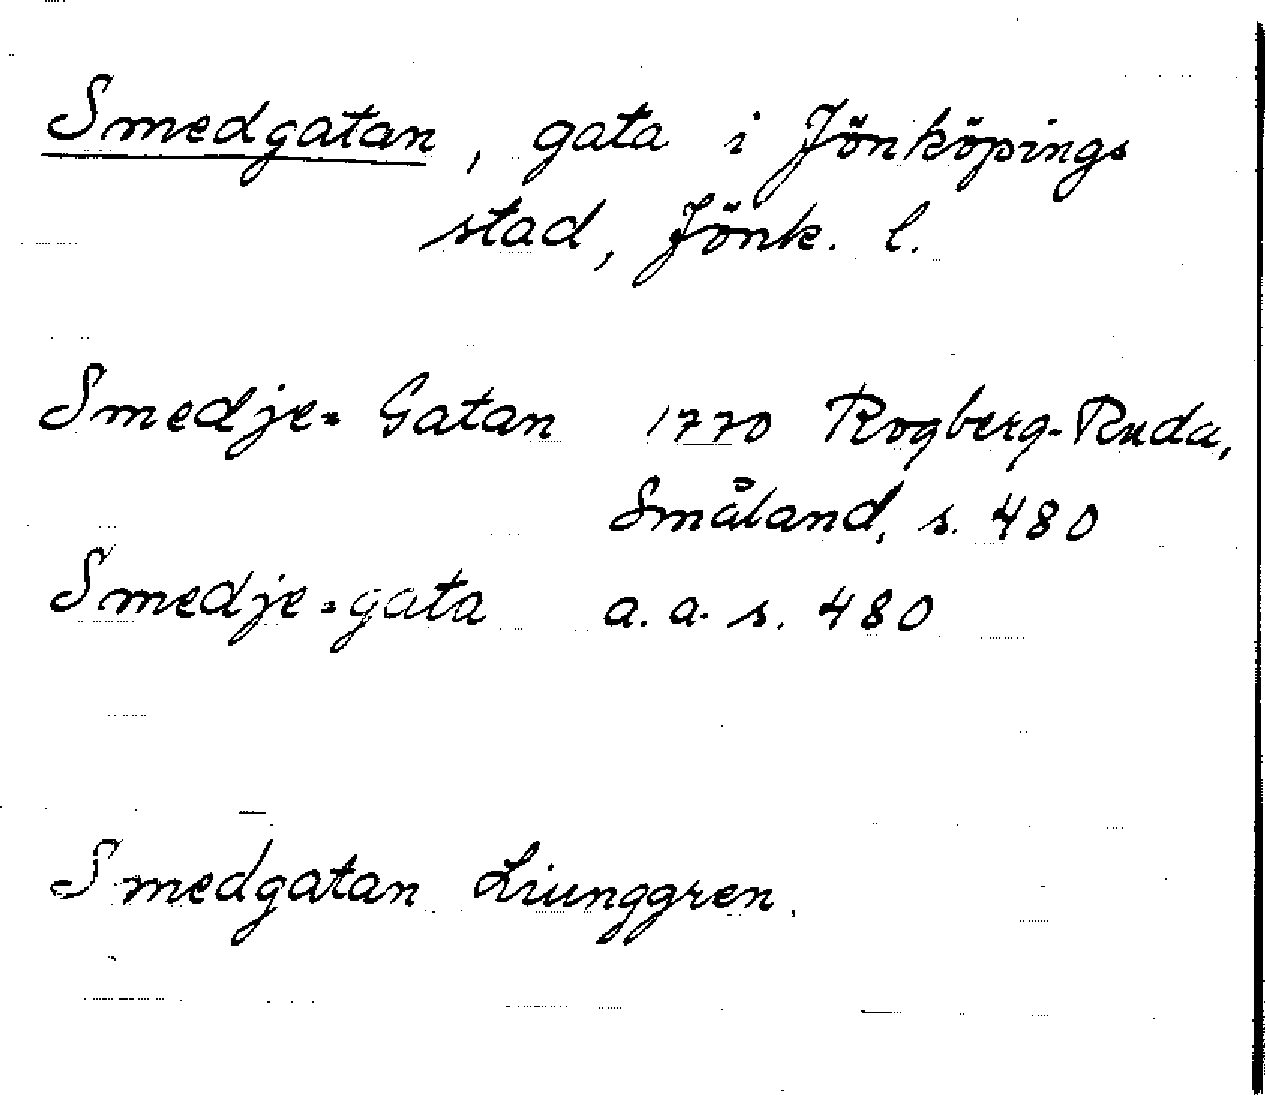 Smedgatan, gata i Jönköpings
stad, Jönk. l.
Smedje= Gatan 1770 Rogberg-Ruda,
Småland, s. 480
Smedje=gata a.a. s. 480
Smedgatan Liunggren.